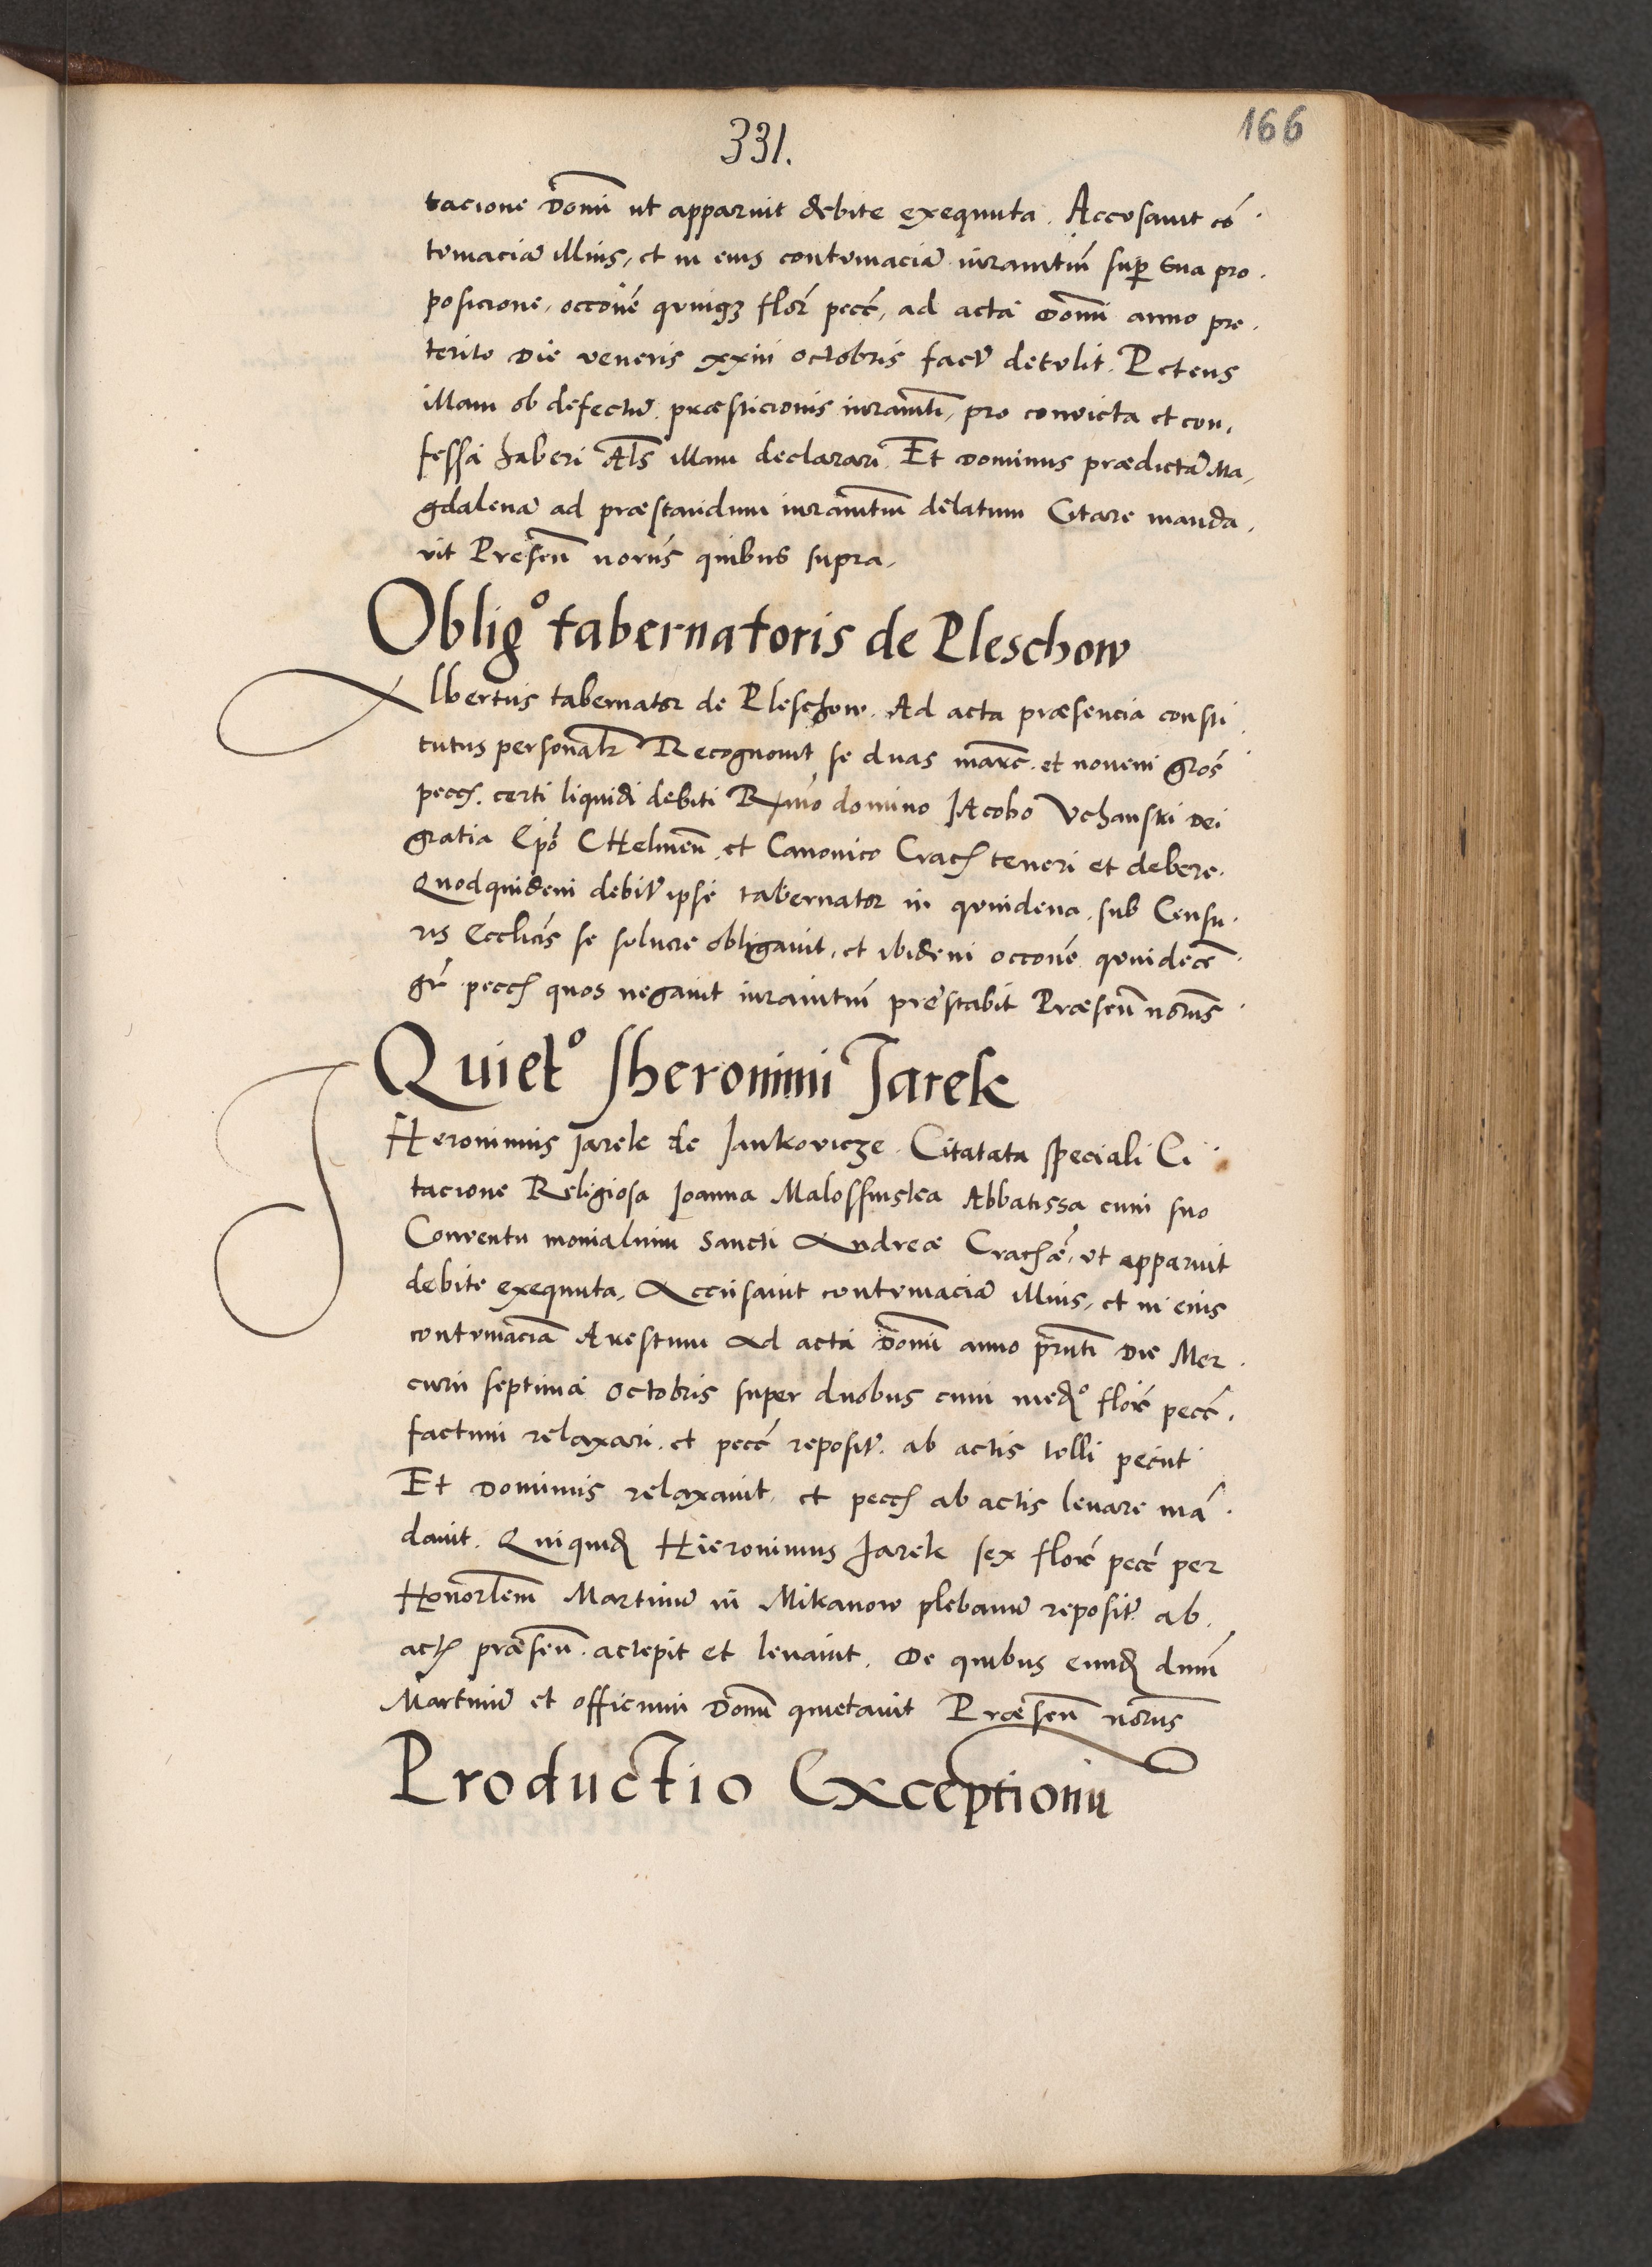 331.
166
tacione Domī ut apparuit debite exequuta. Accusauit cō
tumaciā illius, et in eius contumaciā iuramtūm sup̱ sua pro.
posicione, occōne quinqꝫ flor̄ pecc̄, ad acta Domī anno pre.
terito Die veneris xxiii octobris factū detulit. Petens
illam ob defectū præsticionis iuramtī, pro convicta et con,
fessa haberi Als̄ illam declarari Et Dominus prædictā Ma,
gdalenā ad præstandum iuramtūm delatum Citare manda.
vit Presen̄ noriis̄ quibus supra.
Oblig° tabernatoris de Pleschow
Albertus tabernator de Pleschow. Ad acta præsencia consti
tutus personalr̄ Recognouit se duas marc̄. et novem gros̄
pecc̄. certi liquidi debiti Rm̄o domino Iacobo Vchanski Dei
gratia Ep̄o CHelmen̄. et Canonico Crac̄ teneri et debere.
Quodquidem debitū ipse tabernator in quindena. sub Censu.
ris Ecclīcis se soluere obligauit, et ibidem occōne quindecē
gr̄ pecc̄ quos negauit iuramtūm prestabit Præsen̄ norīis
Quiet° Iheronimi Jarek
IHeronimus Jarek de Jankovicze. Citatata speciali Ci
tacione Religiosa Joanna Malossinska Abbatissa cum suo
Conventu monialium Sancti Andreæ Crac̄æ, ut apparuit
debite exequuta, Accusauit contumaciā illius, et in eius
contumaciam Arestum Ad acta Domī anno prn̄ti Die Mer.
curii septima Octobris super duobus cum med° flor̄ pecc̄.
factum relaxari. et pecc̄ repositū. ab actis tolli peciit
Et Dominus relaxauit, et pecc̄ ab actis leuare mā.
dauit. Quiquid̄ Hieronimus Jarek sex flor̄ pecc̄ per
Honorlēm Martinū in Mikanow plebanū repositū ab.
act̄ præsen̄. accepit et leuauit. De quibus eund̄ dnū̄m
Martinū et officium Domī quietauit Præsen̄ norīis
Productio Exceptionū